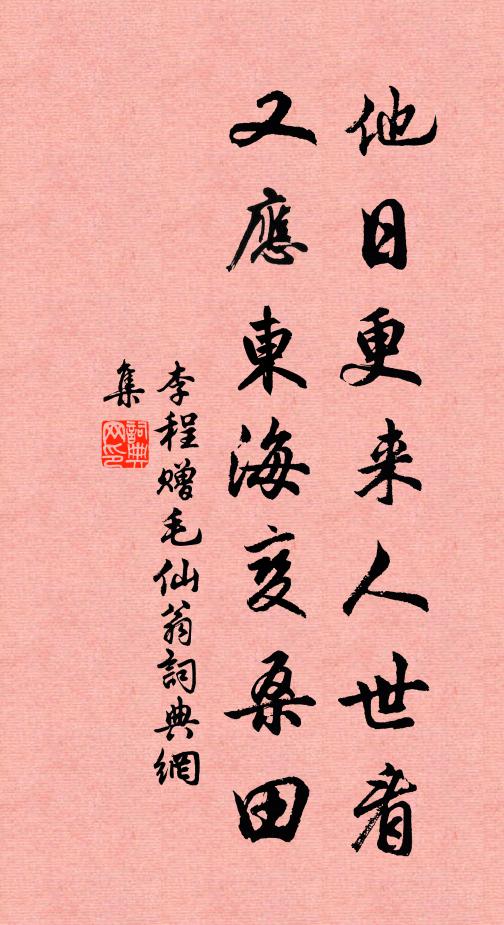 他日更来人世看
又應東海变桑田
李程赠毛仙翁詞典網
集
詞典
网印